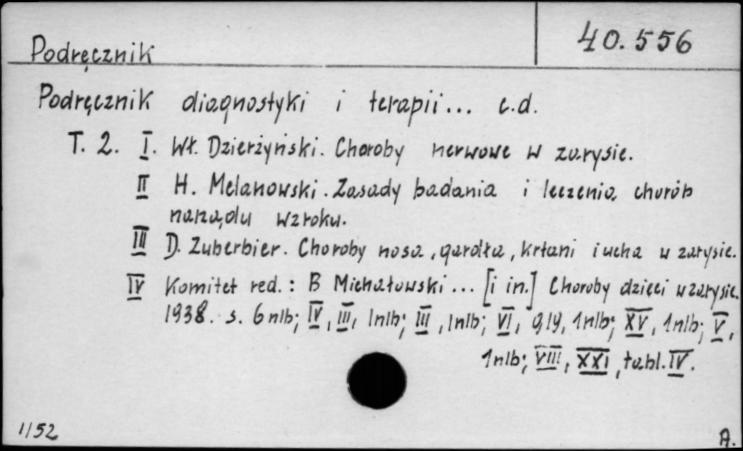 40.556
Podręcznik
Podręcznik diagnostyki i terapii... c.d.
T. 2. I. Wł. Dzierżyński. Choroby nerwowe w zarysie.
II H. Melanowski. Zasady badania i leczenia chorób
narządu wzroku.
III D. Zuberbier. Choroby nosa, gardła, krtani i ucha w zarysie.
IV Komitet red.: B Michałowski... [i in.] Choroby dzieci w zarysie.
1938. s. 6 nlb; IV, III, 1nlb; III, 1nlb; VI, 919, 1nlb; XV, 1nlb; V,
1nlb; VIII, XXI, tabl. IV.
1/52
A.